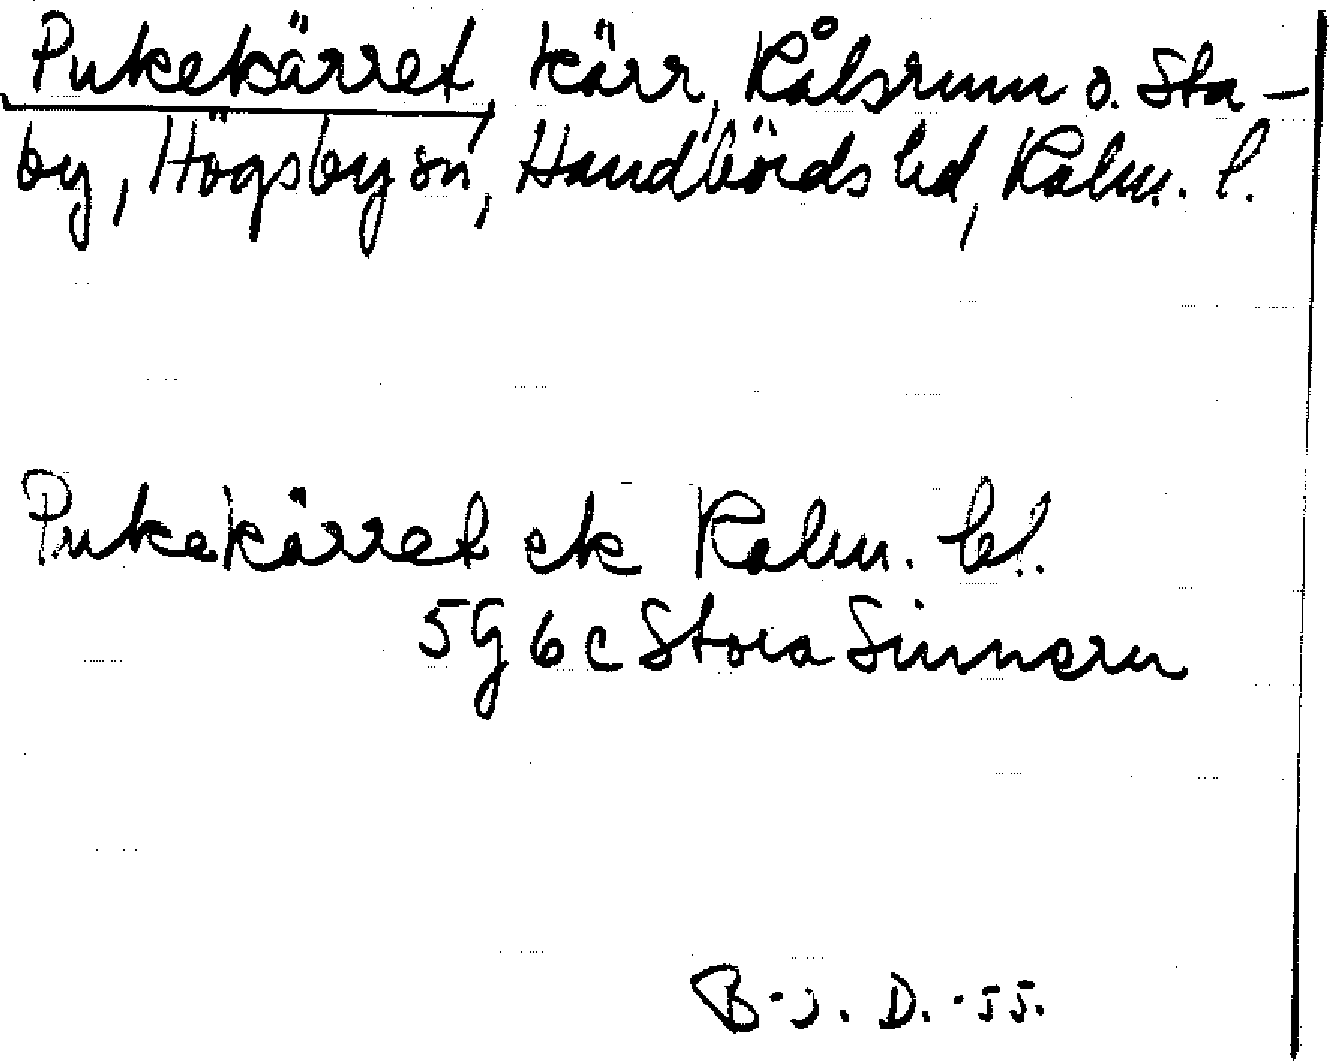 Pukekärret, kärr, Kålsrum o. Sta-
by, Högsby sn, Handbörds hd, Kalm. l.
Pukekärret ek Kalm. bl.
5G6c Stora Sinnern
B-j. D. -55.